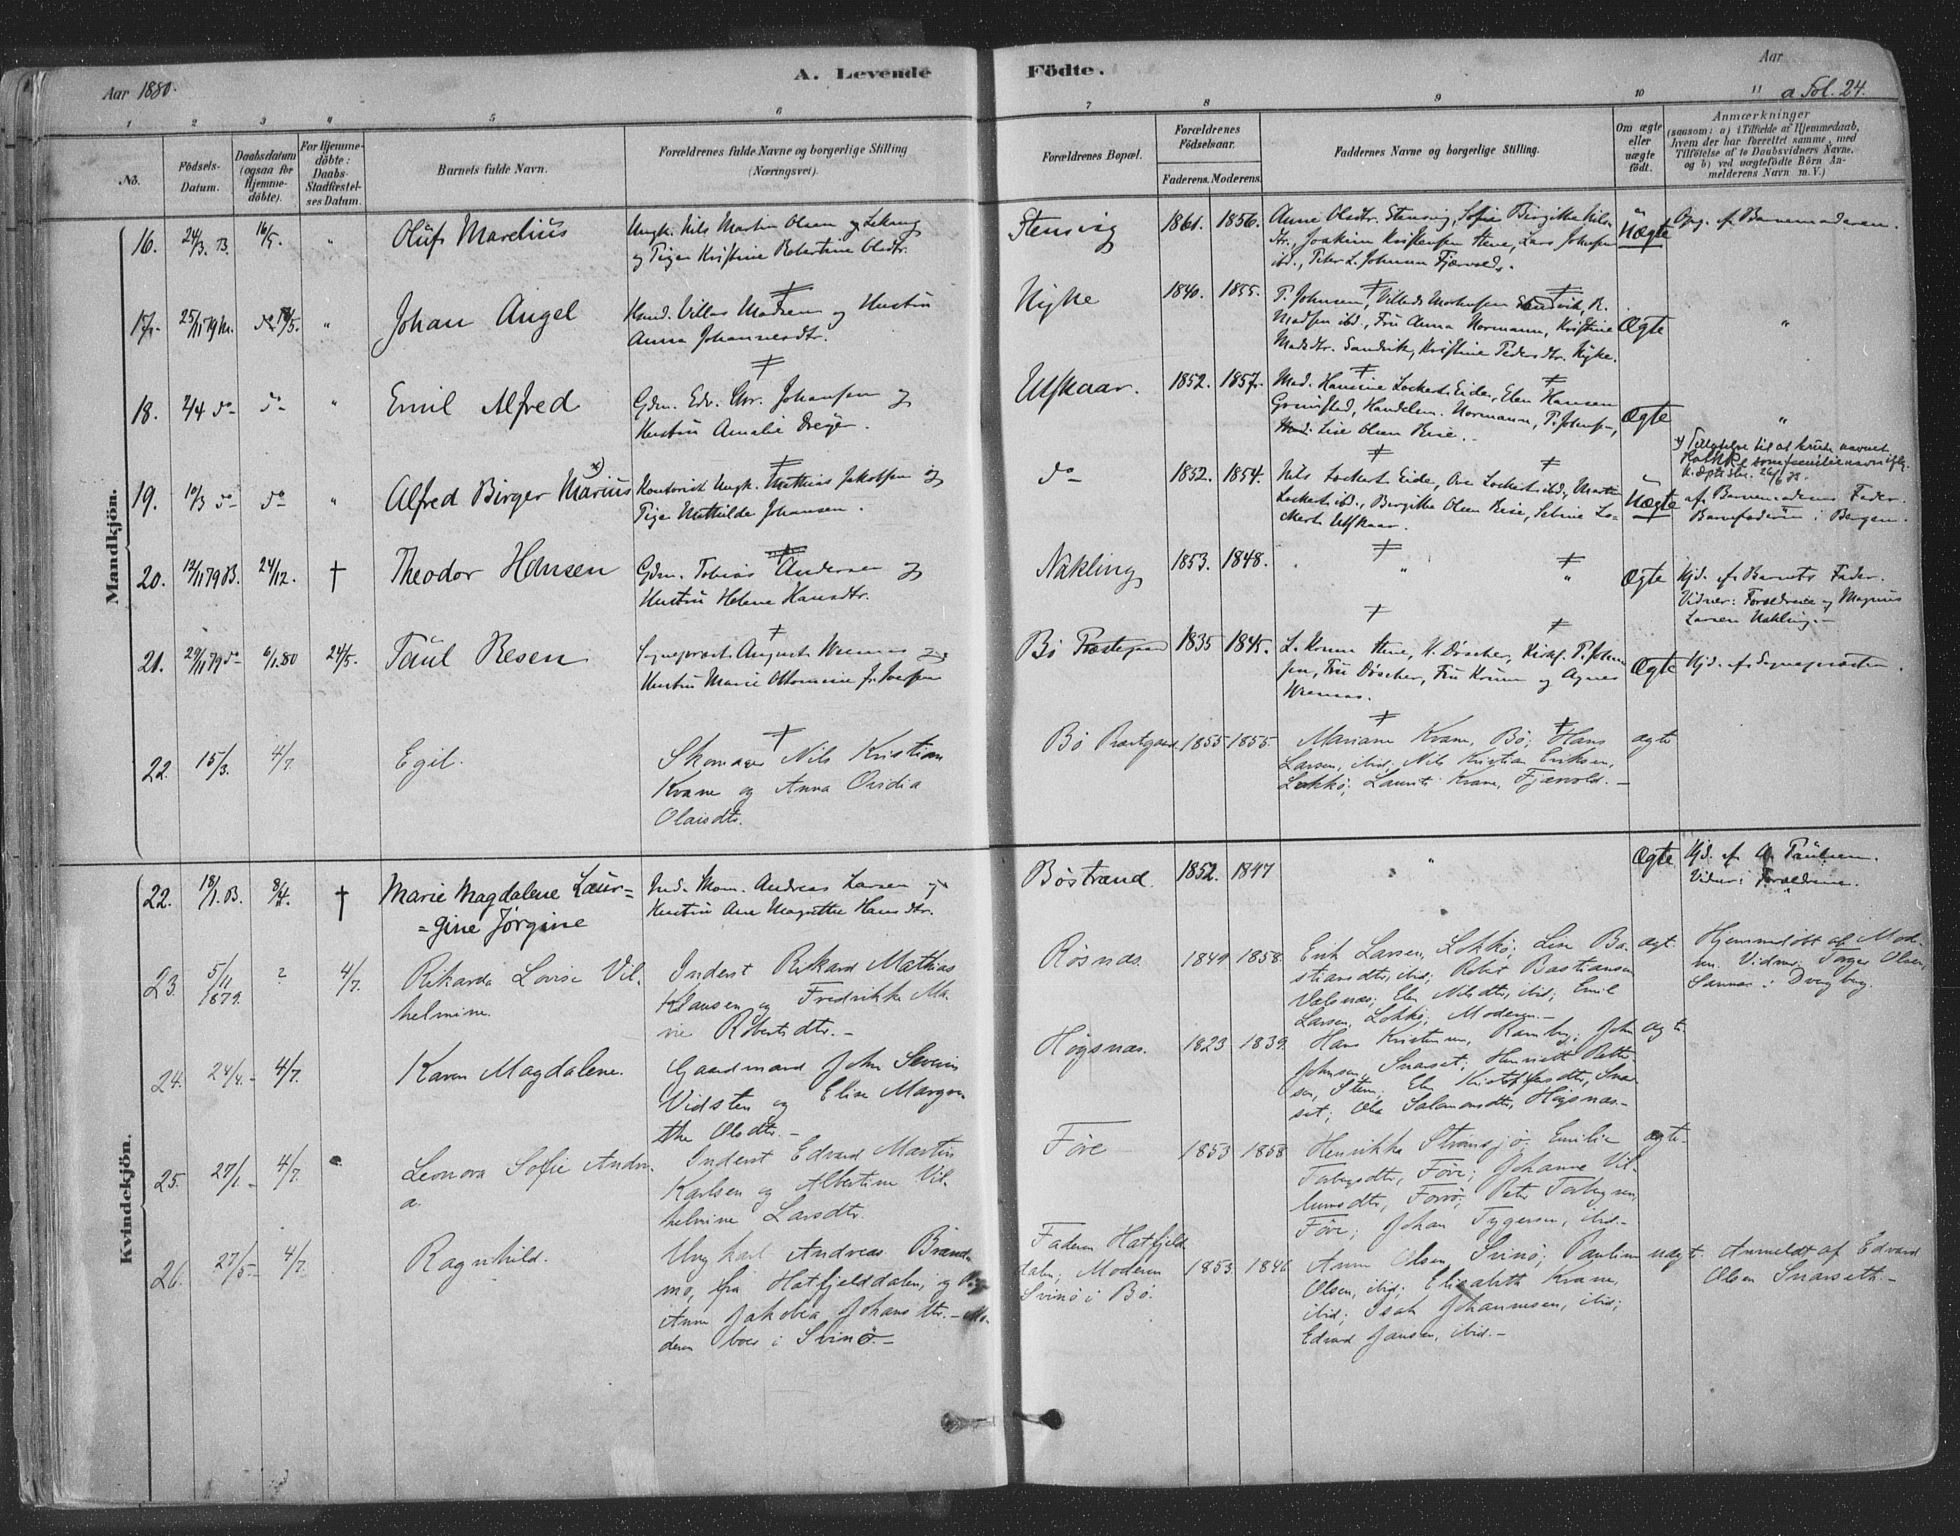 Aar 1880.
A. Levende
Födte.
Aar
a Fol. 24.
1 2 3 4 5 6 7 8 9 10 11
No.
Födsels-
Datum.
Daabsdatum
(ogsaa for
Hjemme-
döbte).
For Hjemme-
döbte:
Daabs-
Stadfæstel-
ses Datum.
Barnets fulde Navn.
Forældrenes fulde Navne og borgerlige Stilling
(Næringsvei).
Forældrenes Bopæl.
Forældrenes
Födselsaar.
Faderens. Moderens.
Faddernes Navne og borgerlige Stilling.
Om ægte
eller
uægte
födt.
Anmærkninger
(saasom: a) i Tilfælde af Hjemmedaab,
hvem der har forrettet samme, med
Tilföielse af to Daabsvidners Navne,
og b) ved uægtefödte Börn An-
melderens Navn m. V.)
Mandkjön.
16. 24/3. B. 16/5. "
Oluf Marelius
Ungk. Nils Martin Olsen
og Pige Kristine Robertine Olsdtr.
Stensvig
1861. 1856.
Anne Olsdtr. Stensvig, Sofie Birgitte Nils-
dtr., Joakim Kristensen Steve, Lars Johnsen
ibd., Peter L. Johnsen Fjærvold.
Uægte
Opg. af Barnemoderen.
17. 25/11 79 "
Johan Angel
Villas Madsen og Hustru
Anna Johannesdtr.
Nyke
1840. 1855.
P. Johnsen, Sandvik, R.
Madsen ibd., Fru Anna Normann, Kristine
Madsdtr. Sandvik, Kristine Pedersdtr. Nyke.
Ægte
"
18. 2/4 do do "
Emil Alfred
Gdm. Edv. Chr. Johansen og
Hustru Amalie Dreyer.
Utskaar.
1852. 1857.
Mad. Hansine Lockert Eide, Elen Hansen
Grimstad, Handelsm. Normann, P. Johnsen,
Mad. Lise Olsen Reise.
Ægte
"
19. 10/3 do do "
Alfred Birger Marius x)
Kontorist Ungk. Mathias Jakobsen og
Pige Mathilde Johansen.
do
1852. 1854.
Nils Lockert Eide, Ove Lockert ibd., Martin
Lockert ibd., Birgitte Olsen Reise, Sebine Lo-
ckert Utskaar.
Uægte
x) Tilladelse til at bruke navnet
af Barnemoderens Fader.
Barnefaderen i Bergen.
20. 12/11 79 B. 24/12. †
Theodor Hansen
Gdm. Tobias Andersen og
Hustru Helene Hansdtr.
Nakling
1853. 1848.
" "
Ægte
Hjd. af Barnets Fader.
Vidner: Forældrene og Magnus
Larsen Nakling.
21. 29/11 79 do 6/1.80 24/5.
Paul Resen
Sognepræst August Wrensas og
Hustru Marie Ottomine f. Iversen
Bö Præstegaard
1835 1845.
L. Krum Steve, H. Döscher, P. Johan-
sen, Fru Döscher, Fru Krum og Agnes
Ægte
Hjd. af Sognepræsten.
22. 15/3. 4/7.
Egil.
Skomager Nils Kristian
Kvane og Anna Ovidia
Olaisdtr.
Bö Præstgaard
1855 1855.
Mariane Kvane, Bö; Hans
Larsen, ibid; Nils Kristian Eriksen,
Lokkö; Laurits Kvane, Fjærvold.
ægte
Kvindekjön.
22. 18/1. 03. 8/4. †
Marie Magdalene Laur-
=gine Jørgine
Ind. Mom. Andreas Larsen og
Hustru Ane Magrethe Hansdtr.
Böstrand.
1852. 1847
"
Ægte
Hjd. af A. Paulsen.
Vidner: Forældrene.
23. 5/11 1879. ? 4/7.
Rikarda Lovise Vil-
helmine.
Inderst Rikard Mathias
Klausen og Fredrikke Ma-
rie Robertsdtr.
Røsnæs.
1849 1858.
Erik Larsen, Lokkö; Lise Ba-
stiansdtr, ibid; Peter Bastiansen
Valsnæs; Elen Nilsdtr, ibid; Emil
Larsen, Lokkö; Moderen.
ægt.
Hjemmedøbt af Mod-
ren. Vidner: Torger Olsen,
Sannes i Dverberg.
24. 24/4. 4/7.
Karen Magdalene.
Gaardmand John Severin
Vidsten og Elise Margre-
the Olsdtr.
Høgsnæs.
1823 1839.
Hans Kristensen, Ramberg; John
Johnsen, Snarset; Henriette Petter-
sen, Stene; Elen Kristoffersdtr, Snar-
set; Ole Salamonsdtr, Høgsnæs.
ægte
25. 27/1. 4/7.
Leonora Sofie Andre-
a.
Inderst Edvard Martin
Karlsen og Albertine Vil-
helmine Larsdtr.
Före
1853 1858
Henrikke Strømsjö; Emilie
Torbergsdtr, Före; Johanne Vil-
lumsdtr, Forrö; Peter Torbergsen,
Före; Johan Tygersen, ibid.
ægte
26. 27/5. 4/7.
Ragnhild.
Ungkarl Andreas Brand-
mo, fra Hatfjelddalen, og Pige
Anne Jakobia Johansdtr. Mo-
deren boer i Svinø.
Faderen Hatfjeld-
dalen; Moderen
Svinö i Bö.
1853. 1846
Anne Olsen, Svinö; Pauline
Olsen, ibid; Elisabeth Kvane,
ibid; Isak Johannesen, ibid;
Edvard Jansen, ibid.
uægt.
Anmeldt af Edvard
Olsen Snarseth.